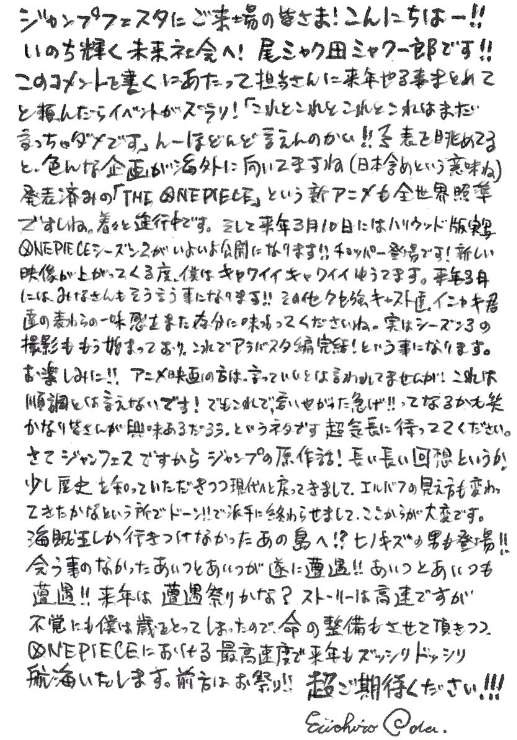 ジャンプフェスタにご来場の皆さま!こんにちはー!!
いのち輝く未来社会へ!尾ミャク田ミャク一郎です!!
このコメントを書くにあたって担当さんに来年やる事まとめて
と頼んだらイベントがズラリ!「これとこれとこれとこれはまだ
言っちゃダメです」んーほどんど言えんのかい!!予表を眺めてる
と、色んな企画が海外に向いてますね(日本含めという意味ね)
発表済みの「THE ONE PIECE」という新アニメも全世界照準
ですしね。着々と進行中です。そして来年3月10日にはハリウッド版実写
ONE PIECEシーズン2がいよいよ公開になります!!チョッパー登場です!新しい
映像が上がってくる度、僕はキャワイイキャワイイゆうてます。来年3月
には、みなさんもそう言う事になります!!その他クセ強キャスト達、イニャキ君
達の麦わらの一味感もまた存分に味わってくださいね。実はシーズン3の
撮影ももう始まっており、これでアラバスタ編完結!という事になります。
お楽しみに!!アニメ映画の方は、言っていいとは言われてませんが!これは
順調とは言えないです!でもこれで、言いやがった急げ!!ってなるかも笑
かなり皆さんが興味あるだろう、というネタです 超気長に待っててください。
さてジャンフェスですからジャンプの原作話!長い長い回想というか
少し歴史を知っていただきつつ現代へと戻ってきまして、エルバフの見え方も変わっ
てきたかなという所でドーン!!で派手に終わらせまして、ここからが大変です。
海賊王しか行きつけなかったあの島へ!?ヒノキズの男も登場!!
会う事のなかったあいつとあいつが遂に遭遇!!あいつとあいつも
遭遇!!来年は遭遇祭りかな?ストーリーは高速ですが
不覚にも僕は歳をとってしまったので、命の整備もさせて頂きつつ
ONE PIECEにおける最高速度で来年もズッシリドッシリ
航海いたします。前方はお祭り!!超ご期待ください!!!
Eiichiro Oda.